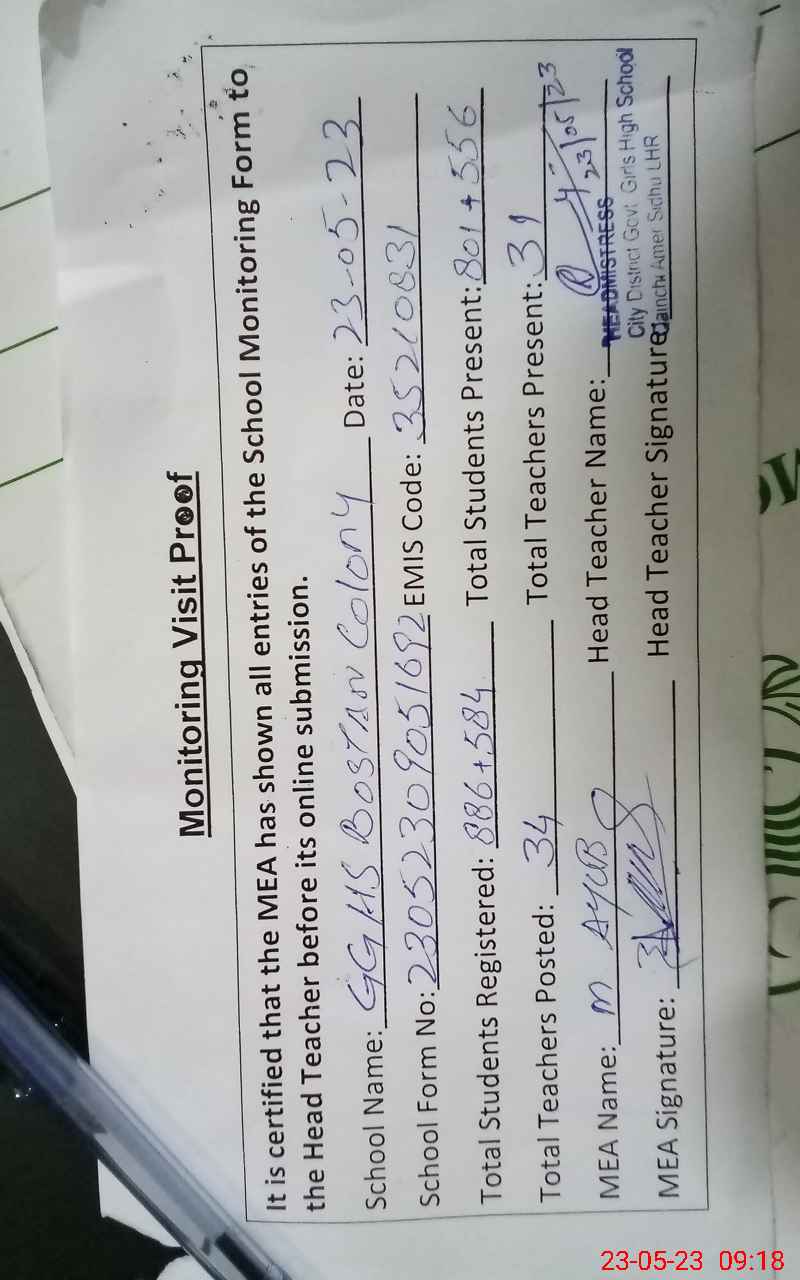 Monitoring Visit Proof
It is certified that the MEA has shown all entries of the School Monitoring Form to
the Head Teacher before its online submission.
School Name: GGHS Bostan Colony Date: 23-05-23
School Form No: 23052309051692 EMIS Code: 35210831
Total Students Registered: 886+584 Total Students Present: 801+556
Total Teachers Posted: 34 Total Teachers Present: 31
23/05/23
MEA Name: M AYUB Head Teacher Name:
HEADMISTRESS
City District Govt Girls High School
MEA Signature: Head Teacher Signature:
Amer Sidhu LHR
23-05-23 09:18